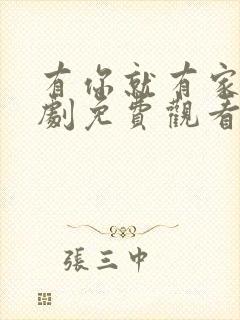 有你就有家
劇免費觀看
張三中